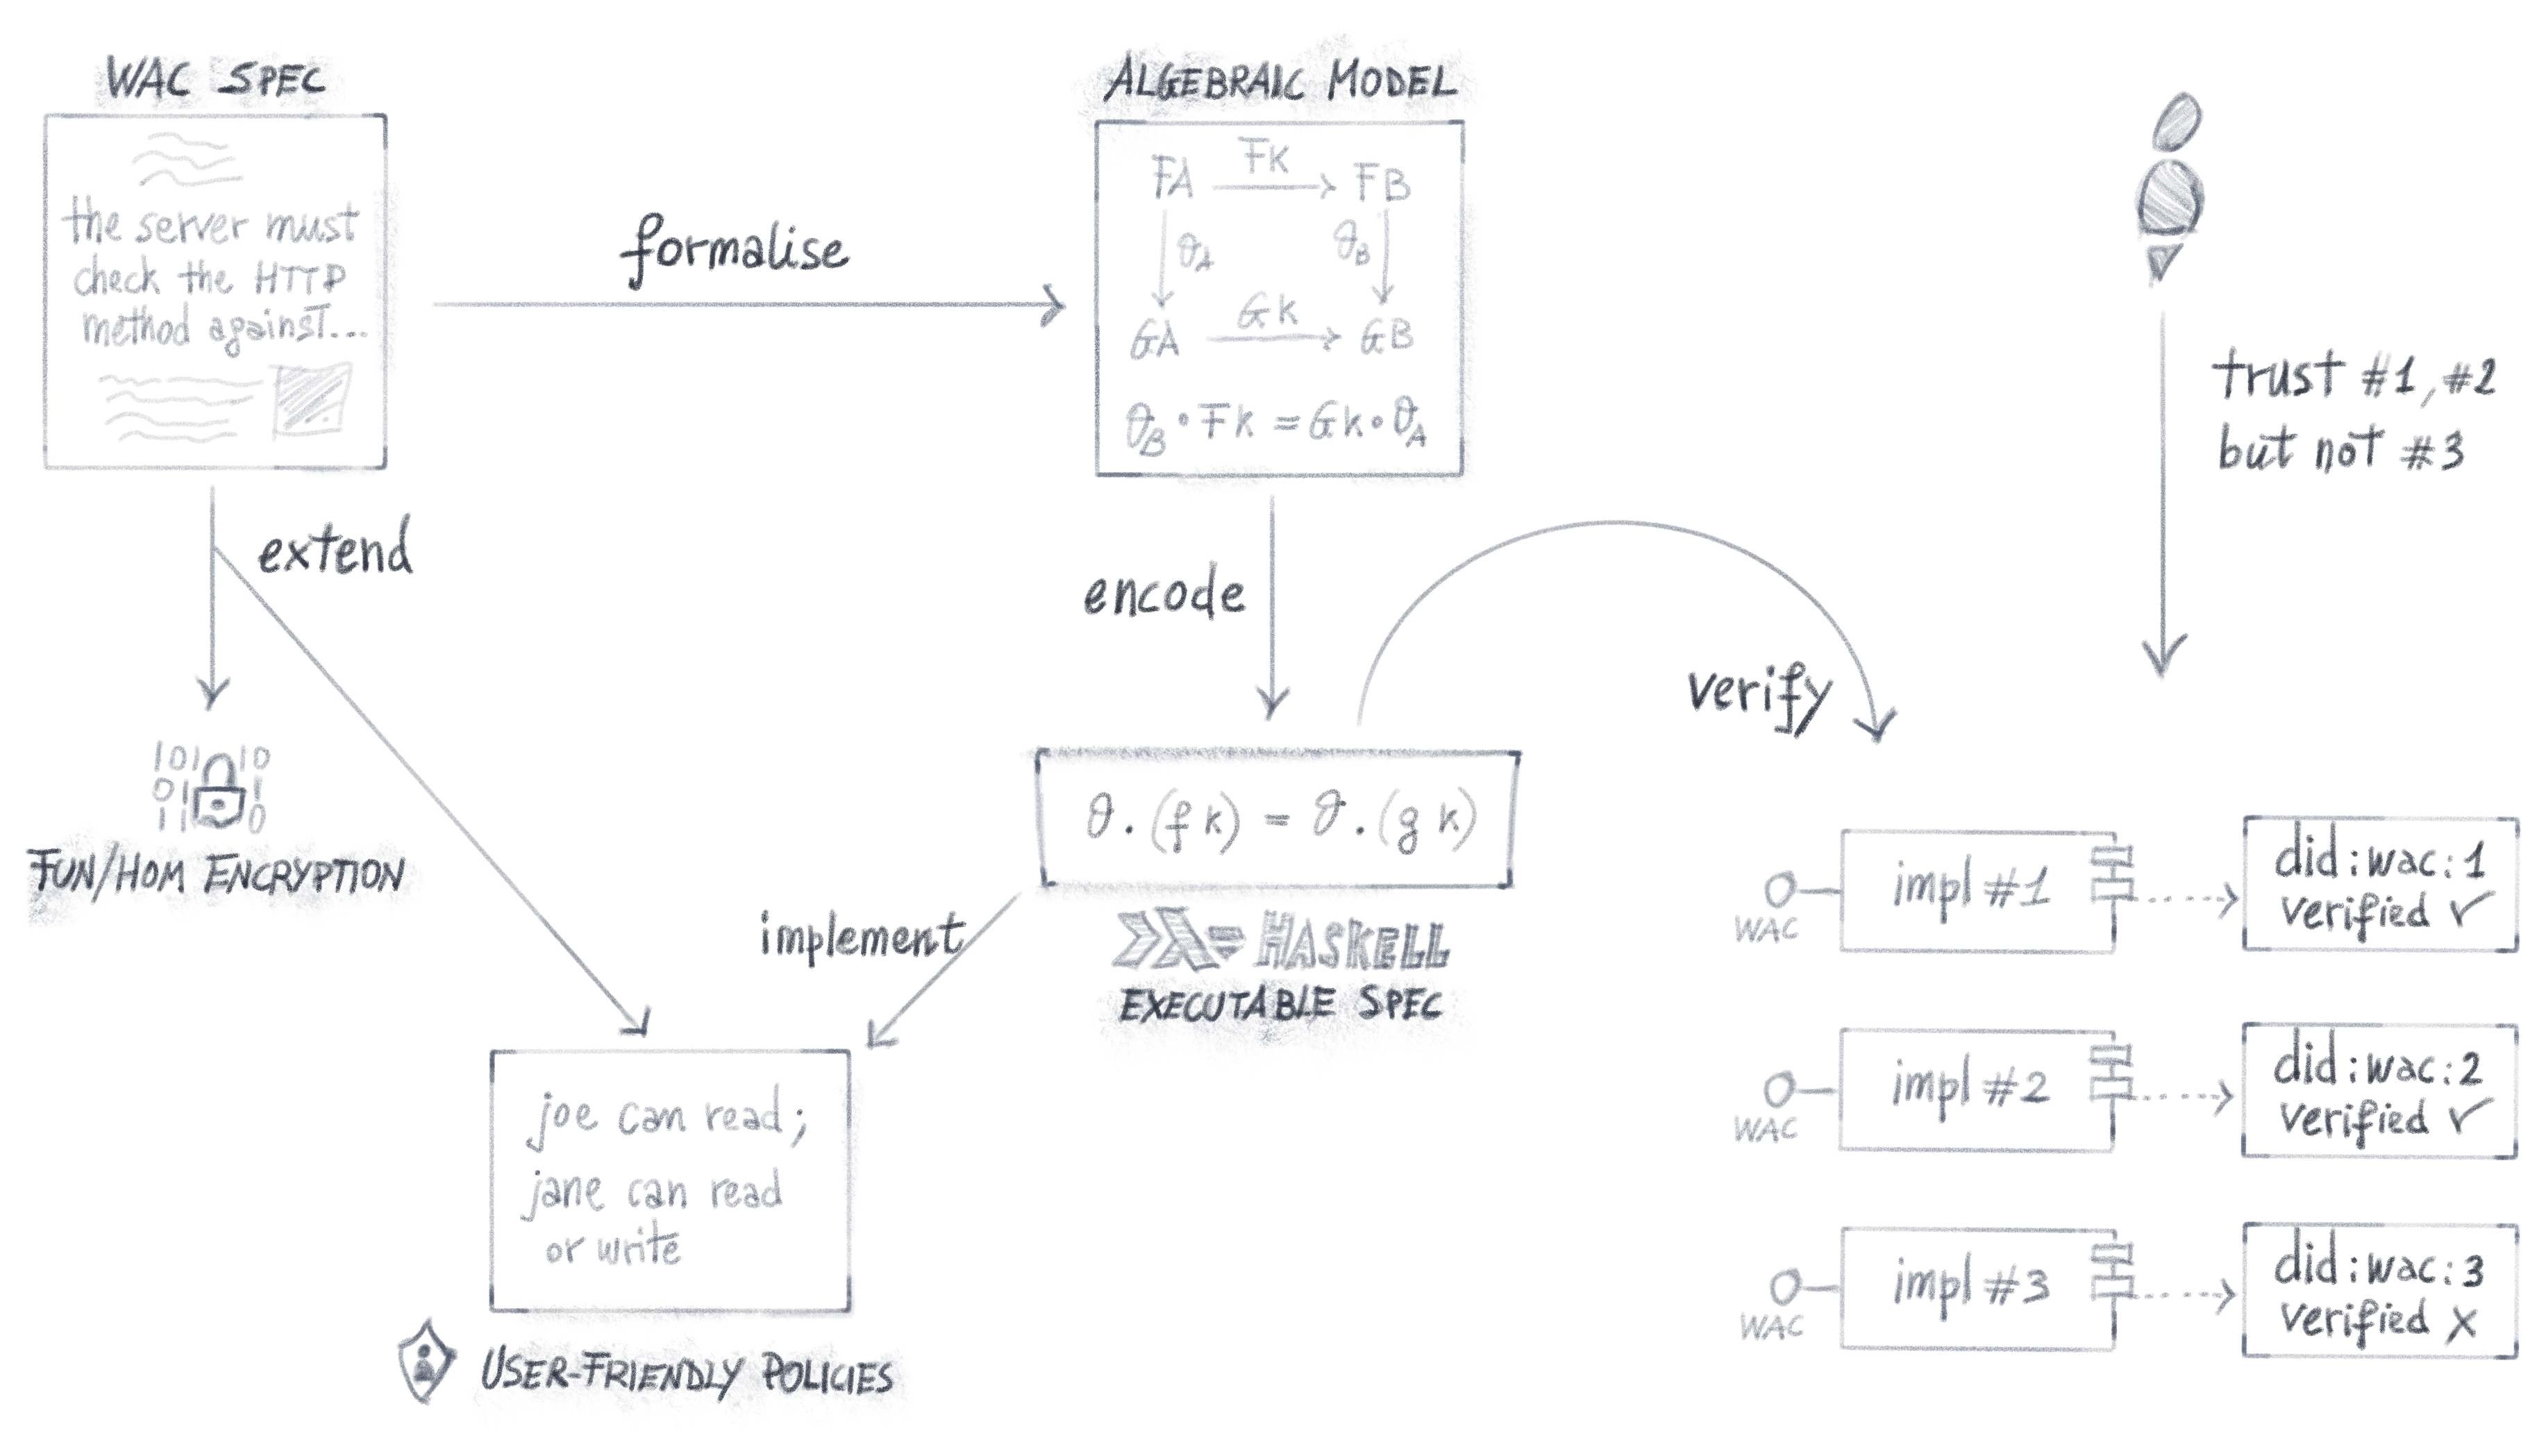 WAC SPEC
the server must
check the HTTP
method against...
formalise
ALGEBRAIC MODEL
FA Fk FB
ϑA ϑB
GA Gk GB
ϑB ∘ Fk = Gk ∘ ϑA
trust #1, #2
but not #3
extend
encode
verify
101010
01 1
11 0
FUN/HOM ENCRYPTION
ϑ. (f k) = ϑ. (g k)
HASKELL
EXECUTABLE SPEC
implement
joe can read;
jane can read
or write
USER-FRIENDLY POLICIES
WAC
impl #1
did:wac:1
verified ✓
WAC
impl #2
did:wac:2
verified ✓
WAC
impl #3
did:wac:3
verified ✗